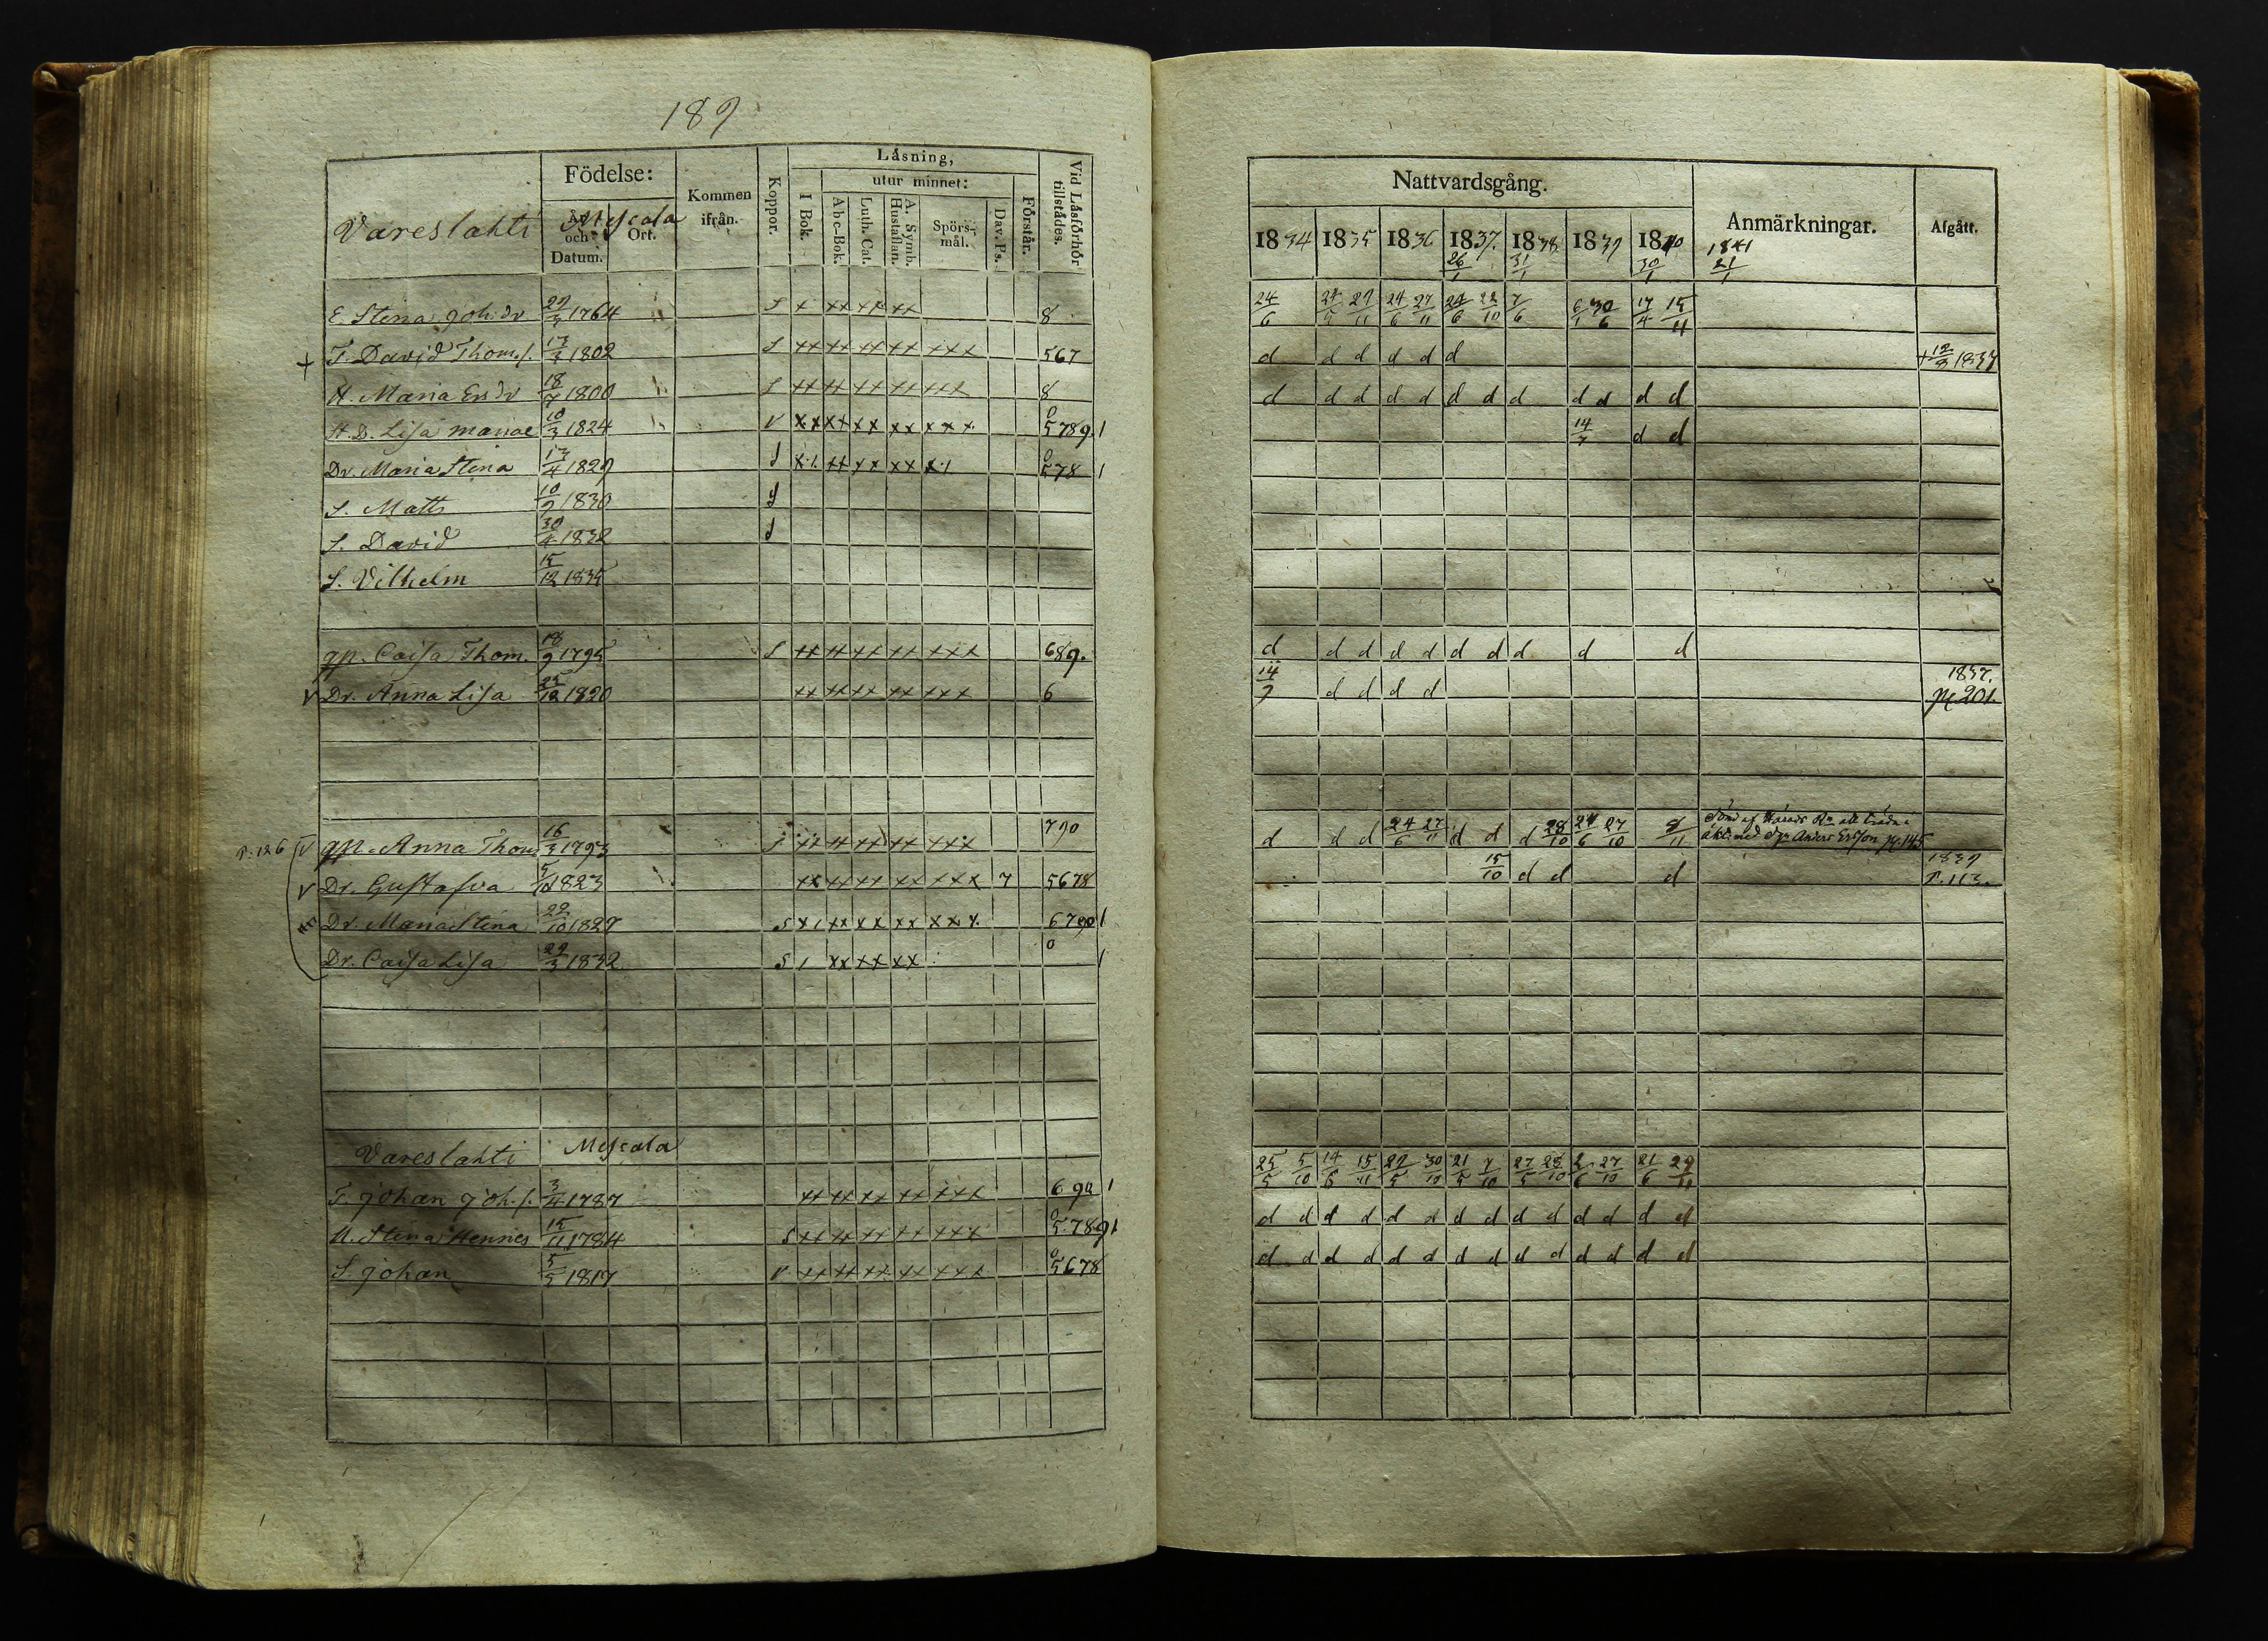 189
Vareslahti Mescala
Födelse:
År och Datum.
Ort.
Kommen ifrån.
Koppor.
Läsning,
I Bok.
utur minnet:
Abc-Bok.
Luth. Cat.
A. Symb. Hustaflan.
Spörs-mål.
Dav. Ps.
Förstår.
Vid Läsförhör tillstädes.
E. Stina Joh:dr 29/3 1764 S x xx xx xx 8
+ T. David Thom.s. 13/3 1802 S xx xx xx xx xxx 567
H. Maria Ersdr 18/7 1800 S xx xx xx xx xxx 8
H.D. Lisa mariae 10/3 1824 v xx xx xx xx xxx 0 5789.1
Dr. Maria Stina 13/4 1829 S x1 xx xx xx x1 0 578 1
S. Matts 10/9 1830 S
S. David 30/4 1832 S
S. Vilhelm 15/12 1835
gp. Caisa Thom. 18/9 1795 S xx xx xx xx xxx 689.
v Dr. Anna Lisa 25/12 1820 xx xx xx xx xxx 6
p. 126 v gp. Anna Thom 16/3 1793 S xx xx xx xx xxx 790
v Dr. Gustafva 5/12 1823 xx xx xx xx xxx 7 5678
Dr. Maria Stina 22/10 1829 S x1 xx xx xx xxx 6790 1
Dr. Caisa Lisa 29/3 1832 S 1 xx xx xx 0 1
Vareslahti Mescala
T. Johan Joh.s. 3/4 1787 xx xx xx xx xxx 690 1
U. Stina Hennes 15/11 1784 S xx xx xx xx xxx 0 5789 1
S. Johan 5/5 1817 v xx xx xx xx xxx 0 5678
Nattvardsgång.
Anmärkningar.
Afgått.
1834 1835 1836 1837. 1838 1839 1840 1841
26/1 31/1 30/1 21/1
24/6 24/5 29/11 24/6 27/11 24/6 22/10 7/6 6/1 30/6 17/4 15/11
d d d d d d + 12/8 1837
d d d d d d d d d d d d
14/7 d d
d d d d d d d d d d
14/7 d d d d 1837. pg 201.
d d d 24/6 27/11 d d d 28/10 24/6 27/10 8/11
med Anders Ersson pg. 145
15/10 d d d 1839 p. 113.
25/5 5/10 14/6 15/11 29/5 30/10 21/5 7/10 27/5 28/10 2/6 27/10 21/6 29/11
d d d d d d d d d d d d d d
d d d d d d d d d d d d d d